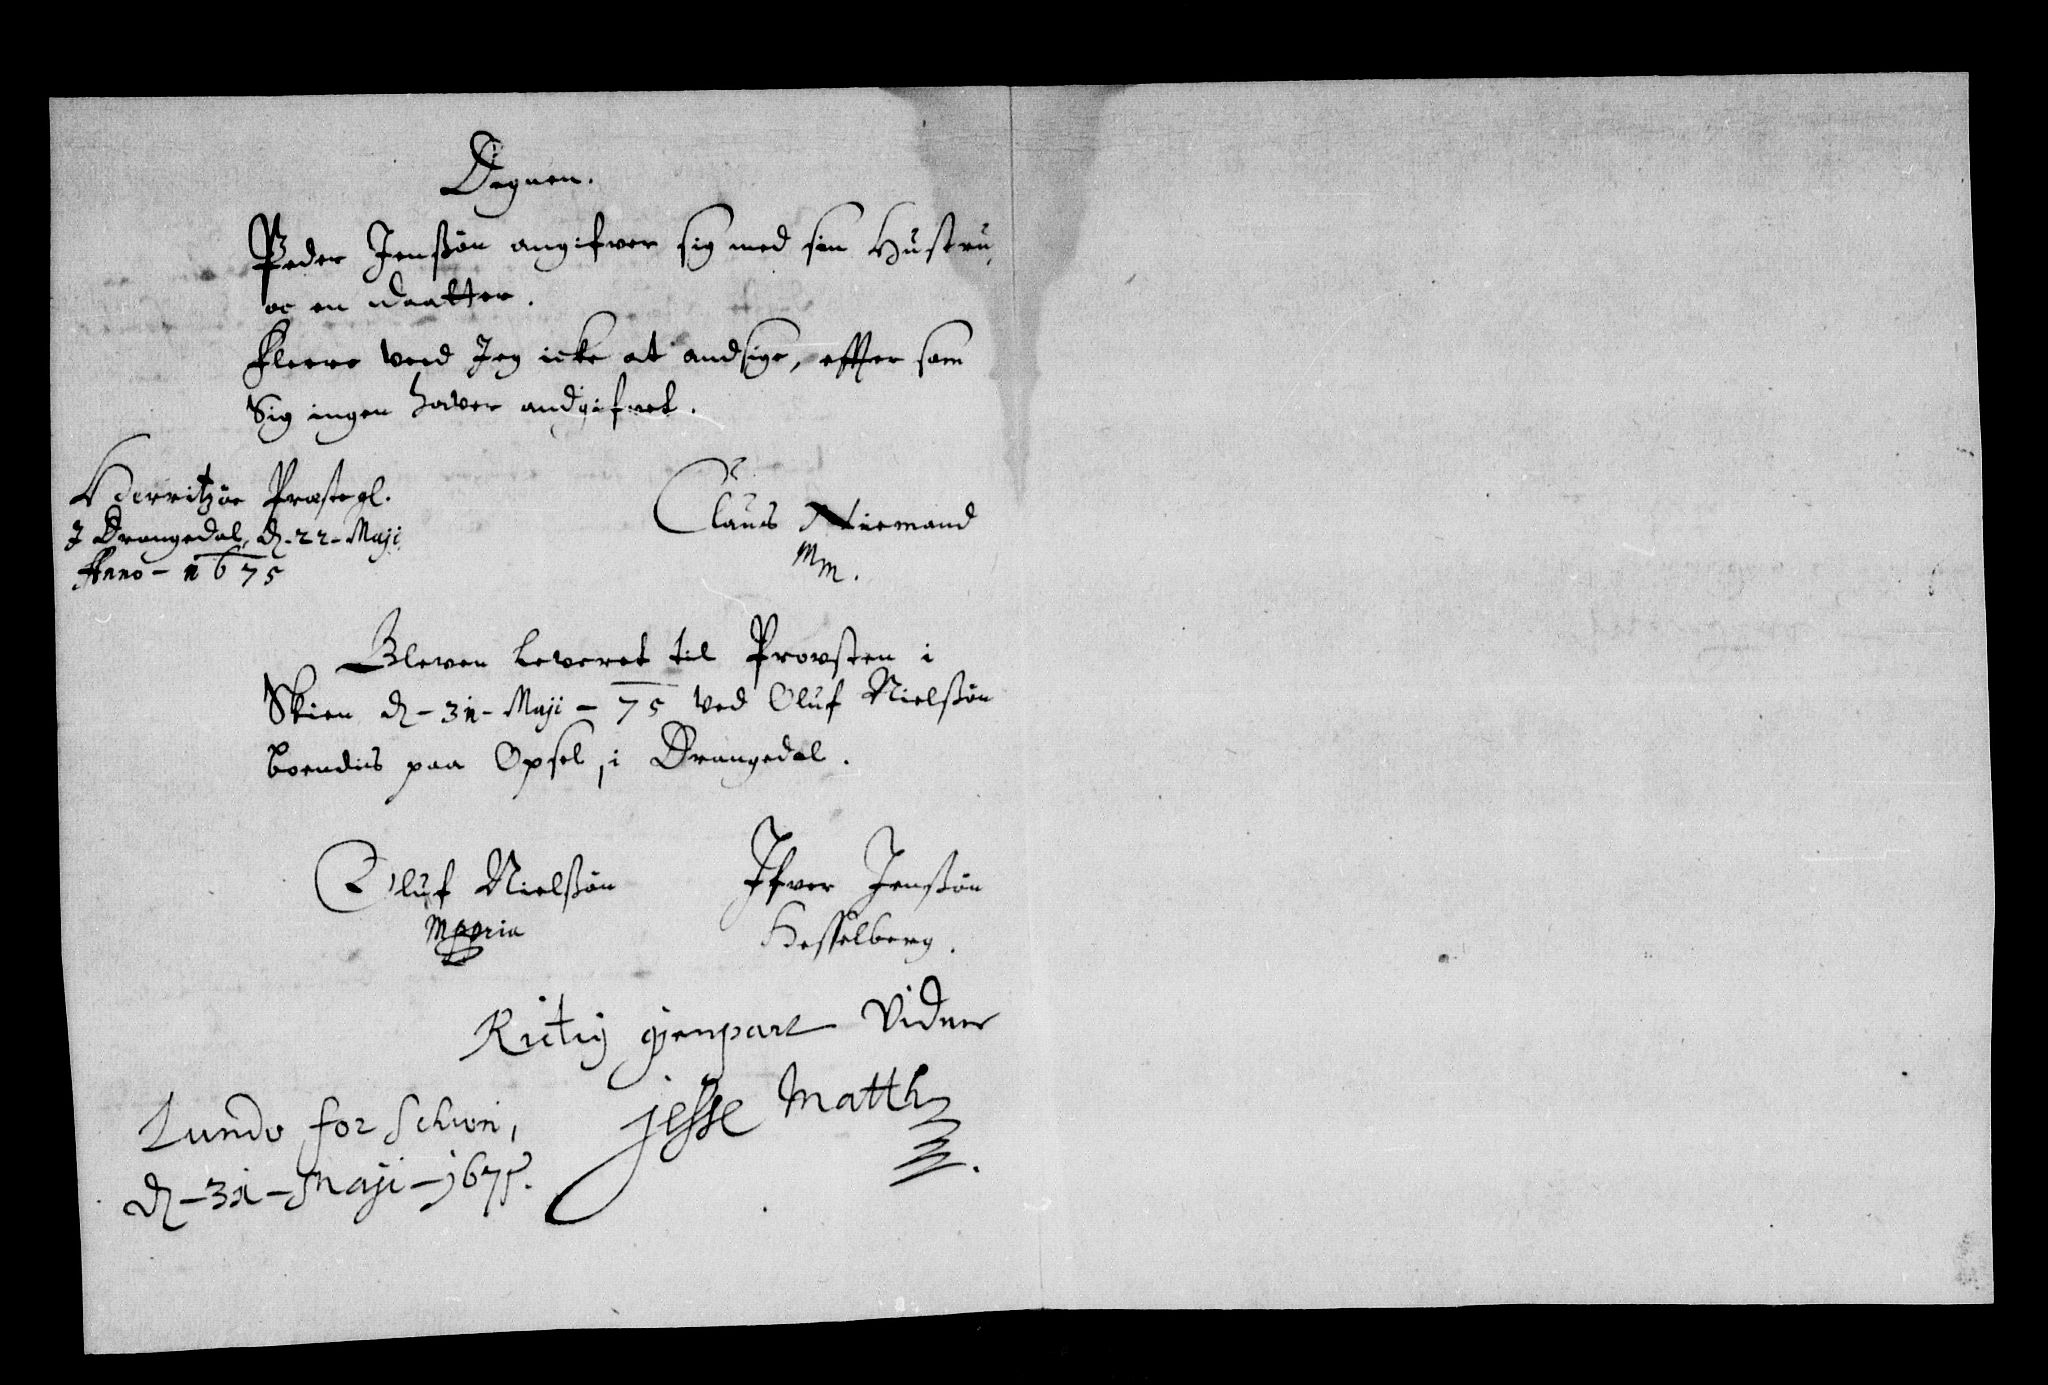 Degnen.
Peder Jenßøn angifver sig med sin Hustru,
oc en daatter.
Fleere veed Jeg icke at andsige, effter som
Sig ingen haver andgifvet.
Præstegl.
J Drangedal, d. 22 - Maji
Anno - 1675
Claus Niemand
Mm.
Bleven leveret til Provsten i
Skien d - 31 - Maji - 75 ved Oluf Nielßøn
boendis paa Opsal, i Drangedal.
Oluf Nielßøn
Mppria
Ifver Jenßøn
Hesselberg.
Rictig gienpart Vidner
Jesse Matth
Lunde for Schien,
d - 31 - Maji - 1675.